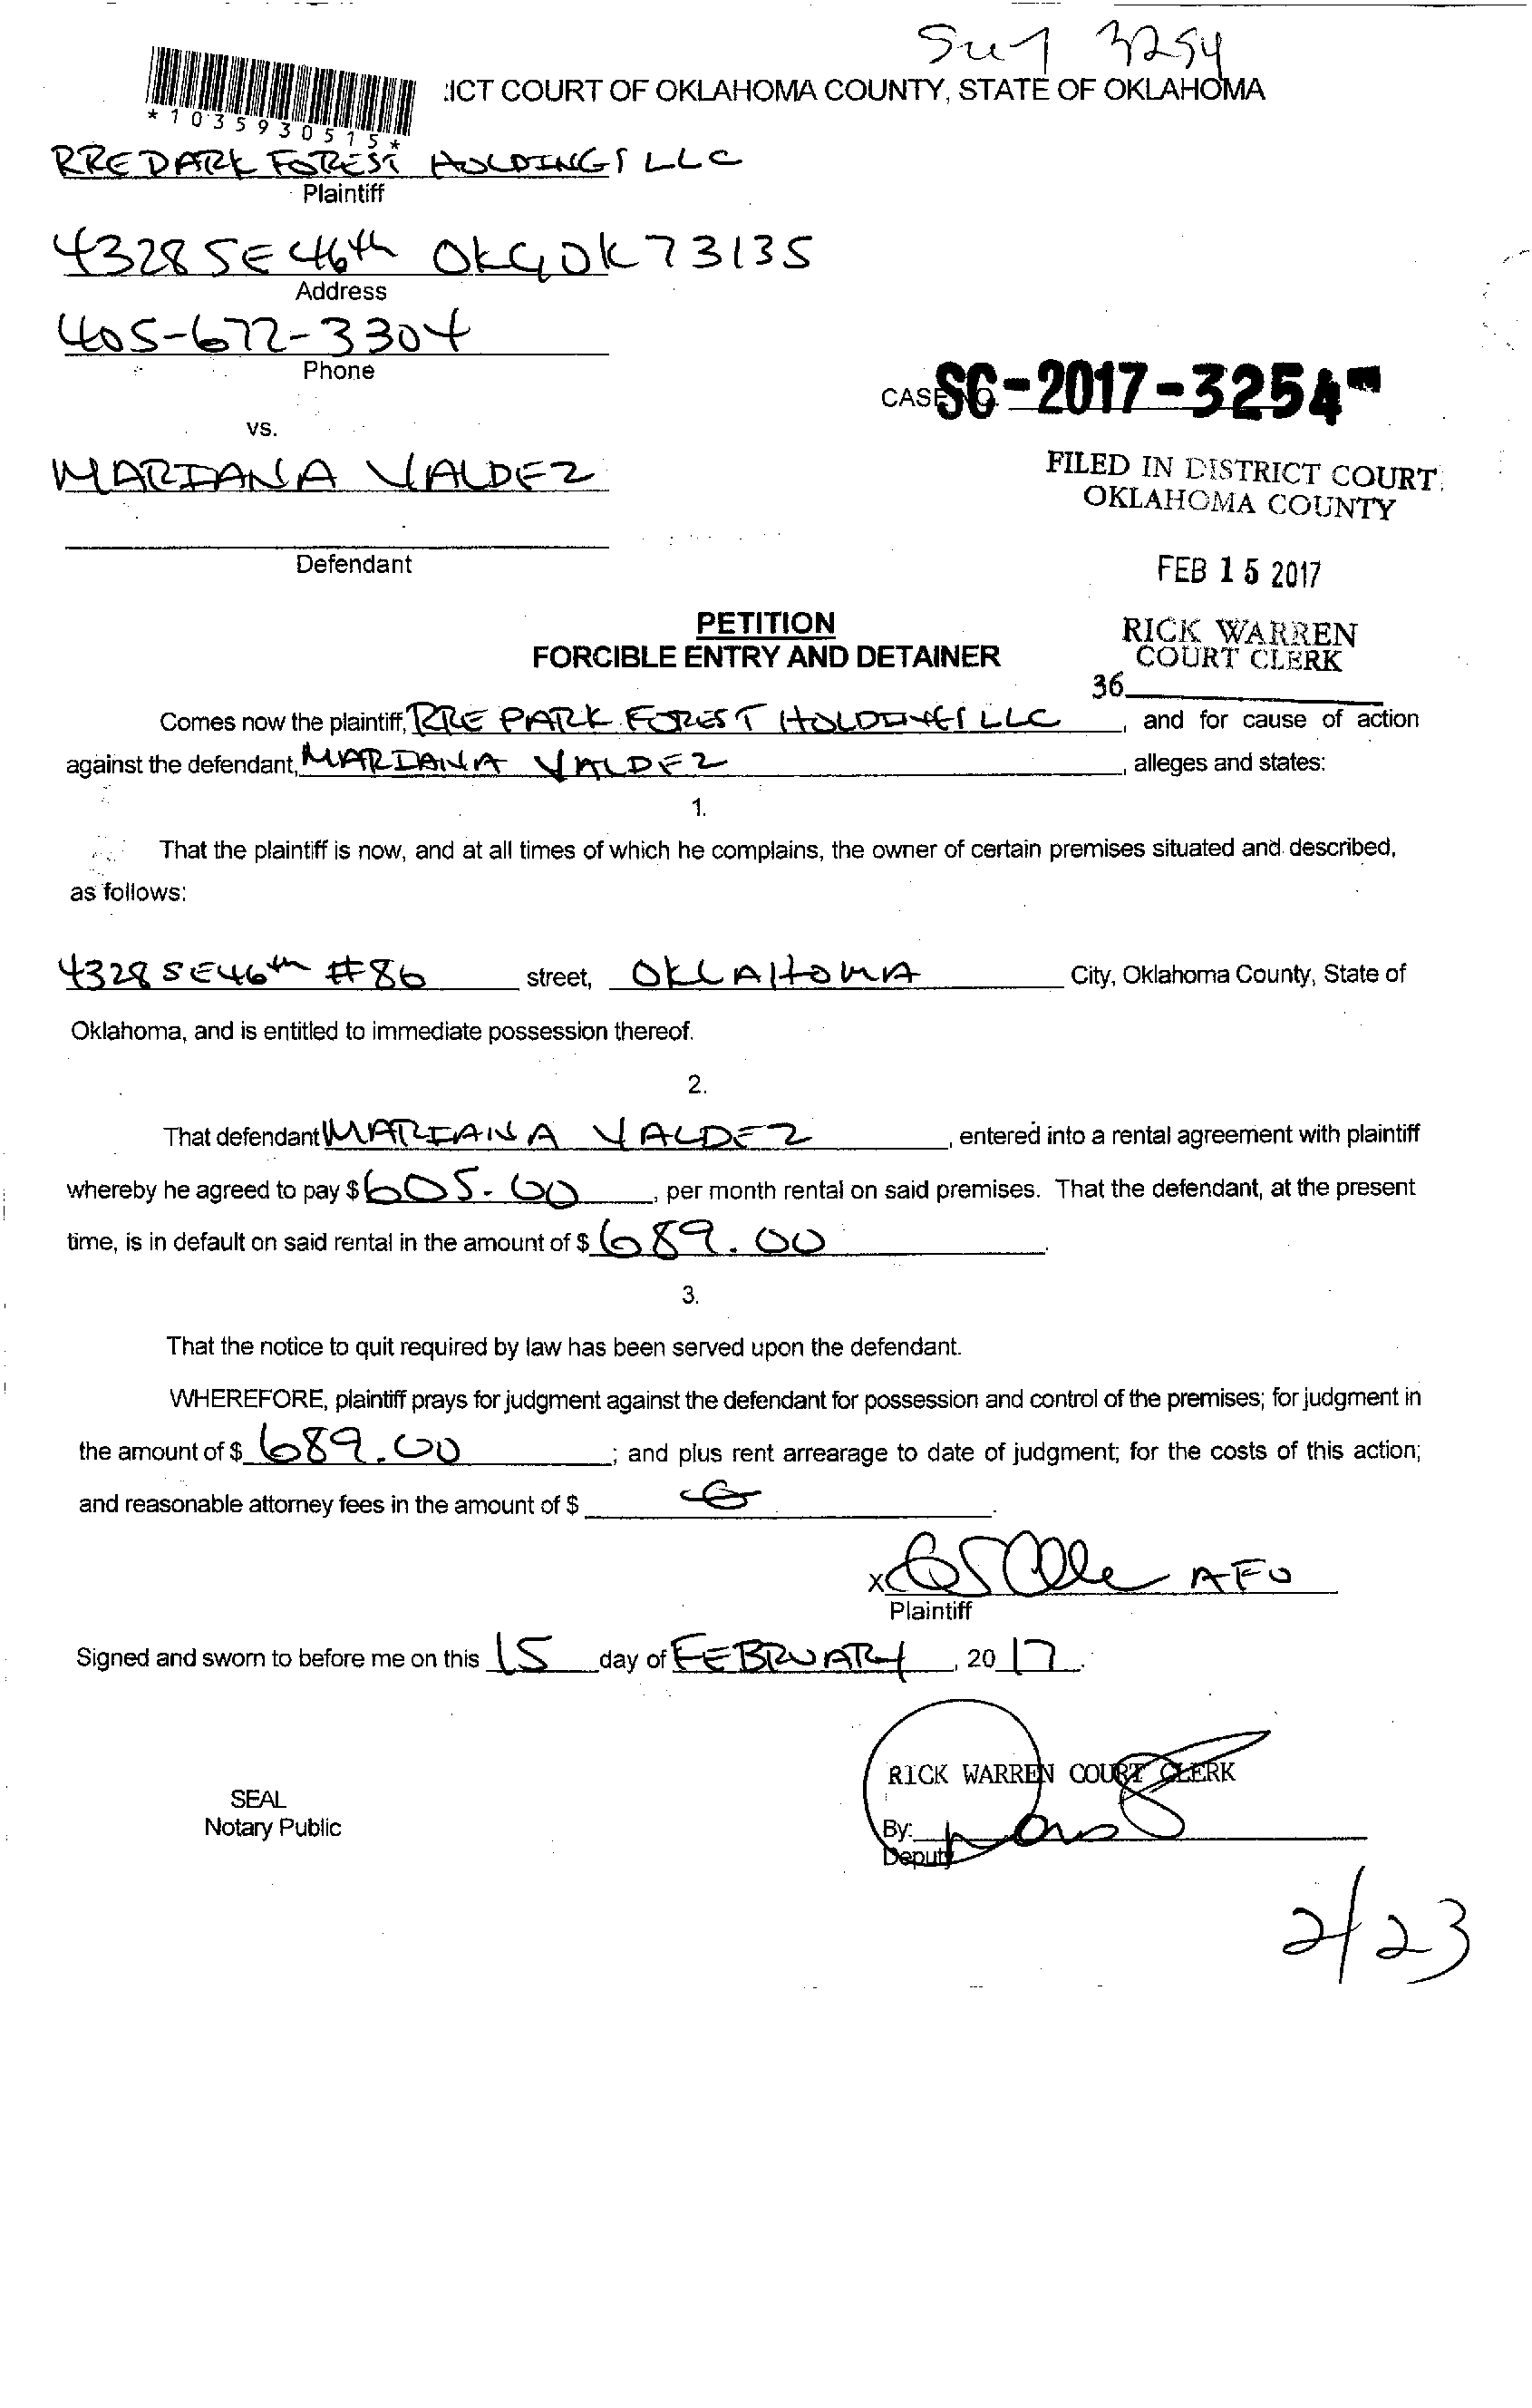 3254
*1035930515*
:ICT COURT OF OKLAHOMA COUNTY, STATE OF OKLAHOMA
RRE PARK FOREST HOLDINGS LLC
Plaintiff
4328 SE 46th OKC, OK 73135
Address
405-672-3304
Phone
CASE NO. SC-2017-3254
vs.
MARIANA VALDEZ
FILED IN DISTRICT COURT
OKLAHOMA COUNTY
Defendant
FEB 15 2017
PETITION
RICK WARREN
FORCIBLE ENTRY AND DETAINER
COURT CLERK
36
Comes now the plaintiff, RRE PARK FOREST HOLDINGS LLC, and for cause of action
against the defendant, MARIANA VALDEZ, alleges and states:
1.
That the plaintiff is now, and at all times of which he complains, the owner of certain premises situated and described,
as follows:
4328 SE 46th #86 street, OKLAHOMA City, Oklahoma County, State of
Oklahoma, and is entitled to immediate possession thereof.
2.
That defendant MARIANA VALDEZ, entered into a rental agreement with plaintiff
whereby he agreed to pay $ 605.00, per month rental on said premises. That the defendant, at the present
time, is in default on said rental in the amount of $ 689.00.
3.
That the notice to quit required by law has been served upon the defendant.
WHEREFORE, plaintiff prays for judgment against the defendant for possession and control of the premises; for judgment in
the amount of $ 689.00; and plus rent arrearage to date of judgment; for the costs of this action;
and reasonable attorney fees in the amount of $
X AFO
Plaintiff
Signed and sworn to before me on this 15 day of FEBRUARY, 2017.
RICK WARREN COURT CLERK
SEAL
Notary Public
By:
Deputy
2/23